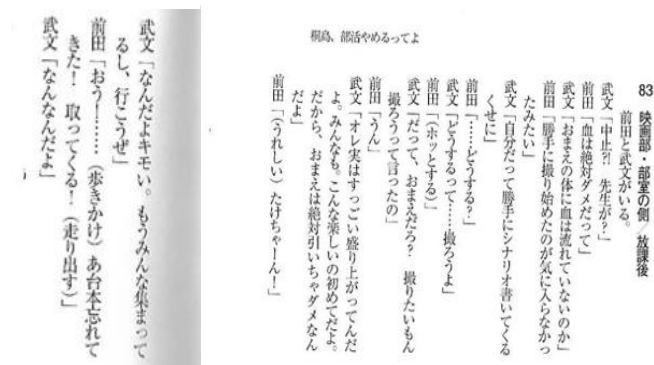 桐島、部活やめるってよ
83 映画部・部室の側／放課後
前田と武文がいる。
武文「中止?! 先生が？」
前田「血は絶対ダメだって」
武文「おまえの体に血は流れていないのか」
前田「勝手に撮り始めたのが気に入らなかっ
たみたい」
武文「自分だって勝手にシナリオ書いてくる
くせに」
前田「……どうする？」
武文「どうするって……撮ろうよ」
前田「（ホッとする）」
武文「だって、おまえだろ？　撮りたいもん
撮ろうって言ったの」
前田「うん」
武文「オレ実はすっごい盛り上がってんだ
よ。みんなも。こんな楽しいの初めてだよ。
だから、おまえは絶対引いちゃダメなん
だよ」
前田「（うれしい）たけちゃーん！」
武文「なんだよキモい。もうみんな集まって
るし、行こうぜ」
前田「おう！……（歩きかけ）あ台本忘れて
きた！　取ってくる！（走り出す）」
武文「なんなんだよ」